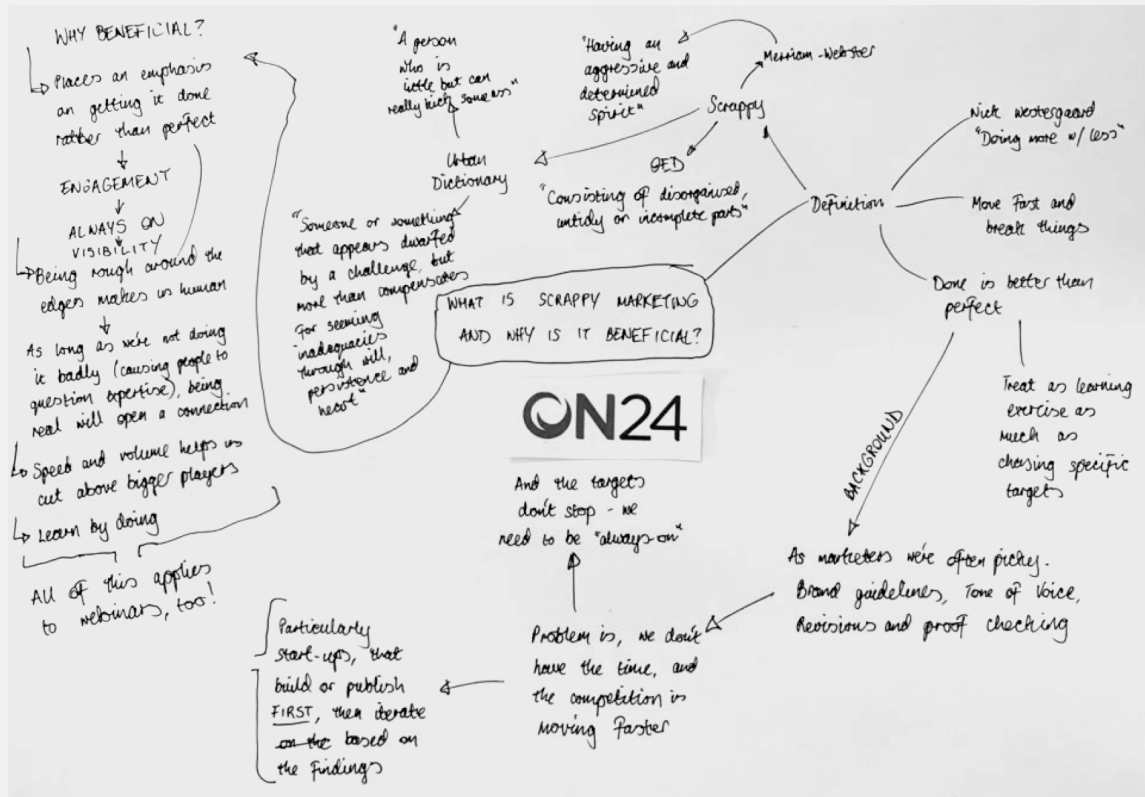 WHY BENEFICIAL?
Places an emphasis
on getting it done
rather than perfect
ENGAGEMENT
ALWAYS ON
VISIBILITY
Being rough around the
edges makes us human
As long as we're not doing
it badly (causing people to
question expertise), being
real will open a connection
Speed and volume helps us
cut above bigger players
Learn by doing
All of this applies
to webinars, too!
"A person
who is
little but can
really kick some ass"
Urban
Dictionary
"Someone or something
that appears dwarfed
by a challenge, but
more than compensates
for seeming
inadequacies
through will,
persistence and
heart"
"Having an
aggressive and
determined
spirit"
Merriam-Webster
Scrappy
OED
"Consisting of disorganised,
untidy or incomplete parts"
Definition
Nick Westergaard
"Doing more w/ less"
Move Fast and
break things
Done is better than
perfect
Treat as learning
exercise as
much as
chasing specific
targets
BACKGROUND
WHAT IS SCRAPPY MARKETING
AND WHY IS IT BENEFICIAL?
ON24
And the targets
don't stop - we
need to be "always-on"
As marketers we're often picky.
Brand guidelines, Tone of Voice,
Revisions and proof checking
Problem is, we don't
have the time, and
the competition is
moving faster
Particularly
start-ups, that
build or publish
FIRST, then iterate
on the based on
the findings